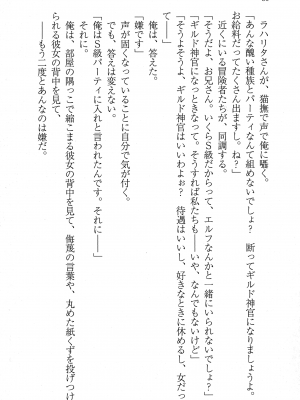 ラハリタさんが、猫撫で声で俺に囁く。
「あんな醜い種族とパーティなんて組めないでしょ？　断ってギルド神官になりましょうよ。
お給料だってたくさん出ますし。ね？」
近くにいる冒険者たちが、同調する。
「そうだよ、お兄さん。いくらＳ級だからって、エルフなんかと一緒にいられないでしょ」
「ギルド神官になっときなって。そうすれば私たちも――いや、なんでもないけど」
「そうよそうよ、ギルド神官はいいわよぉ？　待遇はいいし、好きなときに休めるし、女だっ
て――」
「嫌です」
俺は、答えた。
声が固くなっていることに自分で気が付く。
でも、答えは変えない。
「俺はＳ級パーティに入れと言われたんです。それに――」
それに。
俺は、部屋の隅っこで縮こまる彼女の背中を見て、
られる彼女の背中を見て、侮蔑の言葉や、丸めた紙くずを投げつけ
――もう二度とあんなのは嫌だ。